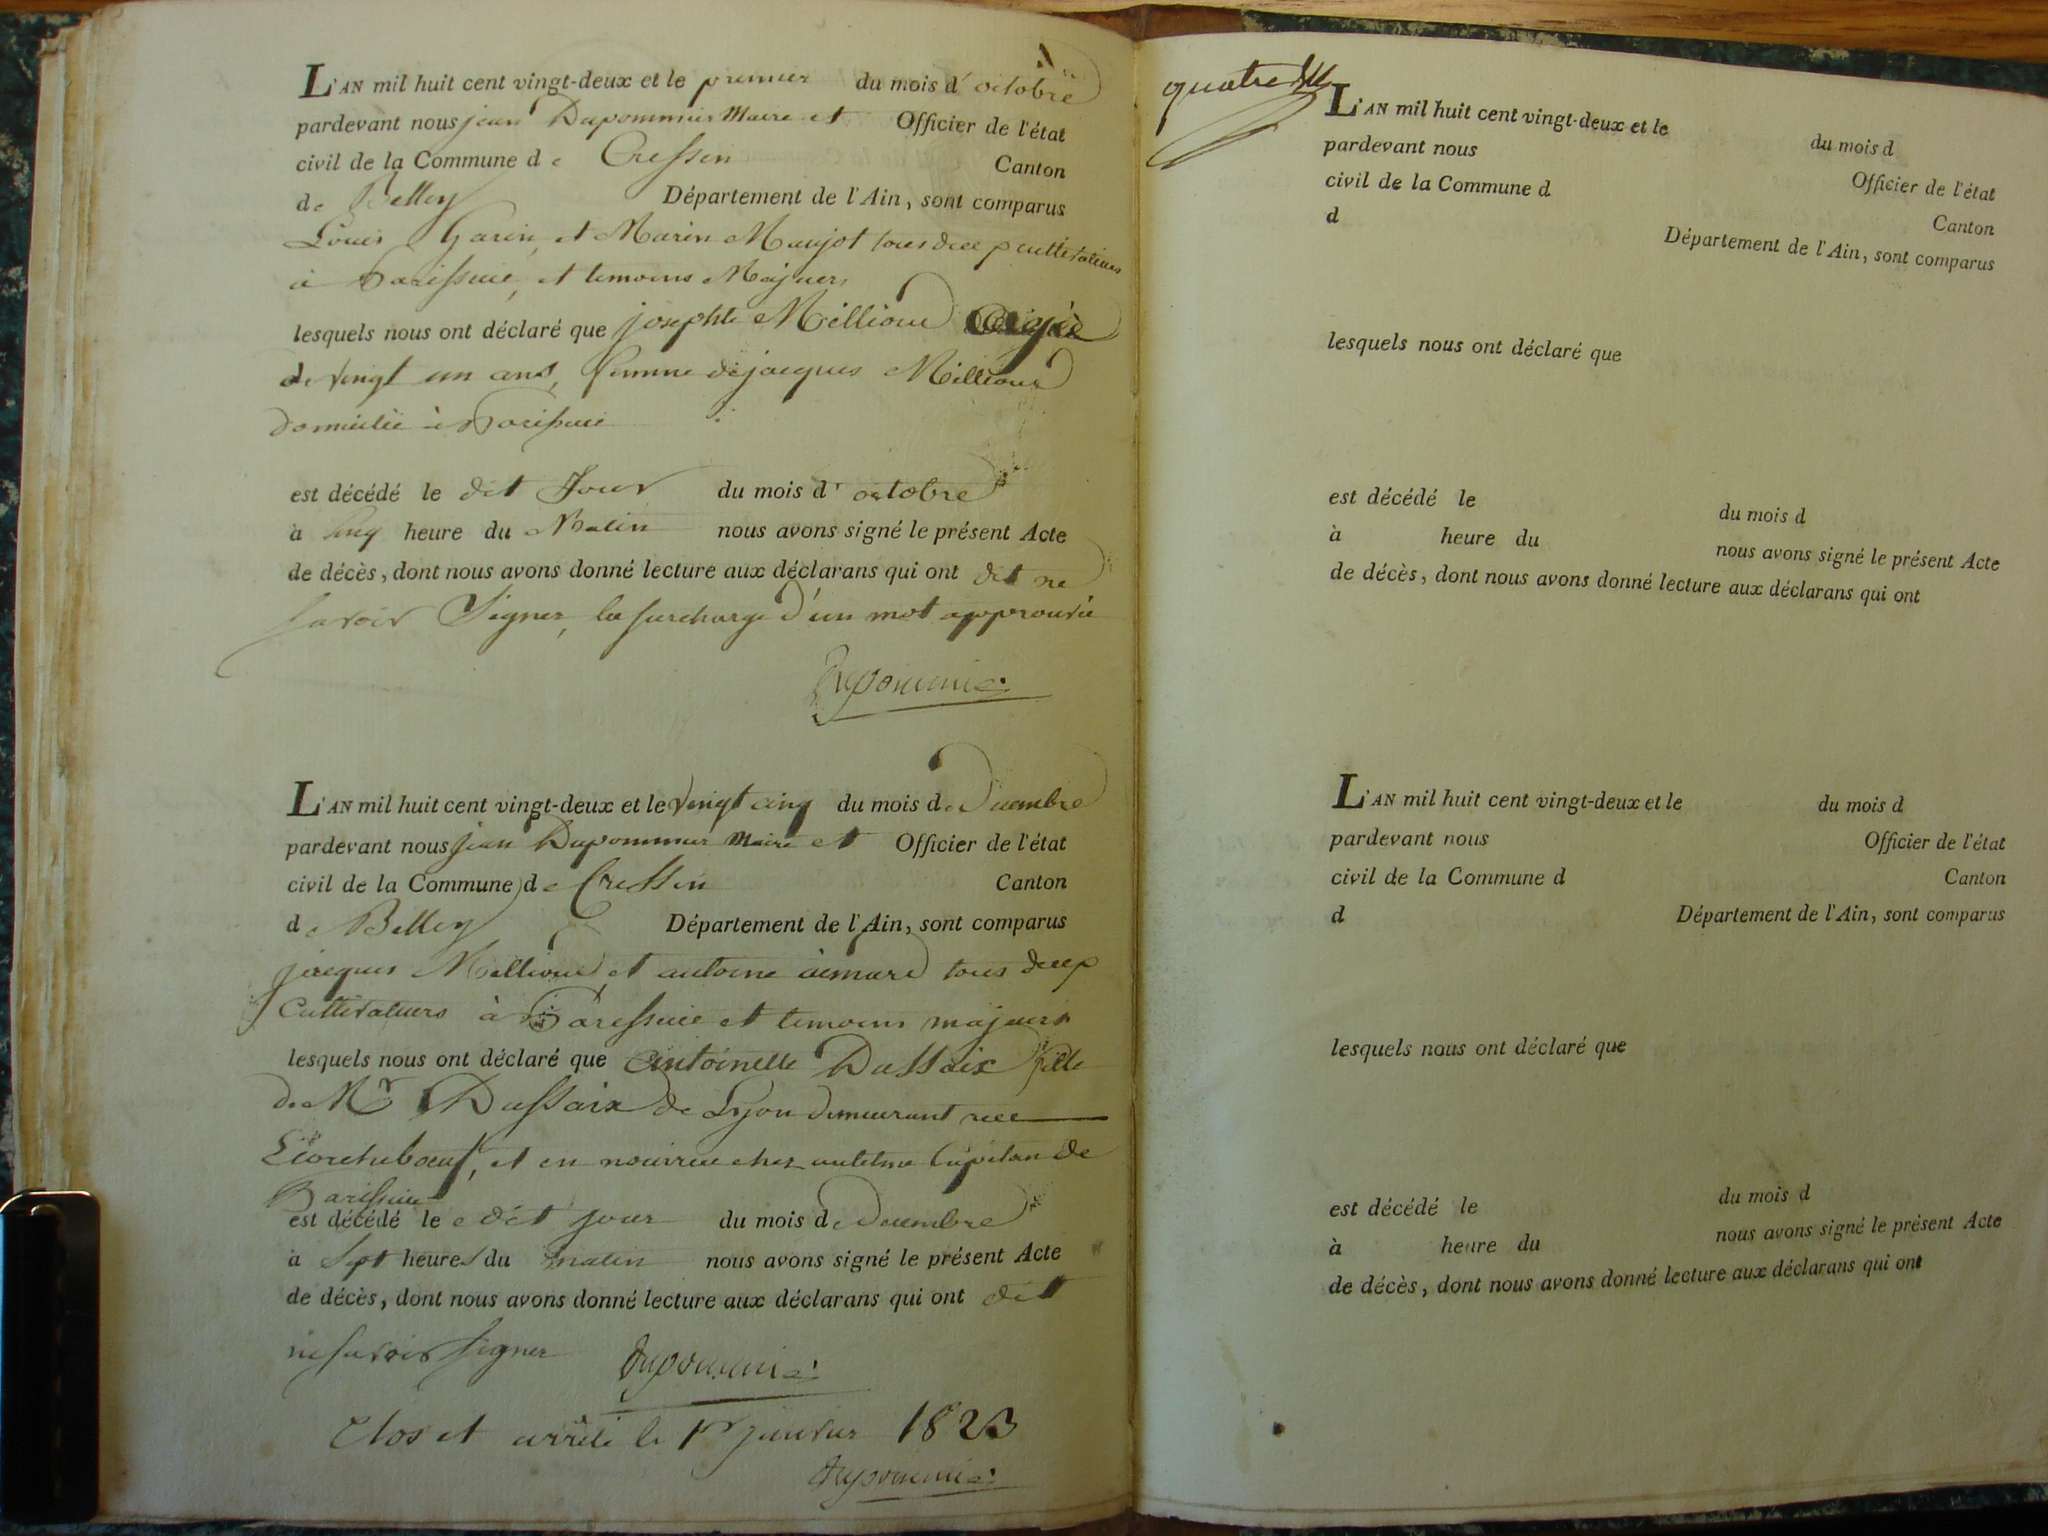 L'AN mil huit cent vingt-deux et le premier du mois d'octobre
pardevant nous jean Dupommier Maire et Officier de l'état
civil de la Commune de Cressin Canton
de Belley Département de l'Ain, sont comparus
Louis Garin, et Marin Maujot tous deux cultivateurs
à Parissieu, et temoins Majeurs
lesquels nous ont déclaré que josephte Milliou agée
de vingt un ans, femme de jacques Milliou
domicilié à Parissieu
est décédé le dit Jour du mois d'octobre
à cinq heure du Matin nous avons signé le présent Acte
de décès, dont nous avons donné lecture aux déclarans qui ont dit ne
savoir Signer, la surcharge d'un mot approuvée
Dupommier
L'AN mil huit cent vingt-deux et le vingt cinq du mois de Decembre
pardevant nous jean Dupommier Maire et Officier de l'état
civil de la Commune de Cressin Canton
de Belley Département de l'Ain, sont comparus
jacques Milliou, et antoine aimard tous deux
Cultivateurs à Paressieu et temoins majeurs
lesquels nous ont déclaré que antoinette Dussaix fille
de Mr Dussaix de Lyon demeurant rue
Ecorcheboeuf, et en nourrice chez antelme Capitan de
Parissieu
est décédé le dit jour du mois de Decembre
à Sept heures du matin nous avons signé le présent Acte
de décès, dont nous avons donné lecture aux déclarans qui ont dit
ne savoir signer Dupommier
Clos et arrété le 1er janvier 1823
Dupommier
quatre
L'AN mil huit cent vingt-deux et le du mois d
pardevant nous Officier de l'état
civil de la Commune d Canton
d Département de l'Ain, sont comparus
lesquels nous ont déclaré que
est décédé le du mois d
à heure du nous avons signé le présent Acte
de décès, dont nous avons donné lecture aux déclarans qui ont
L'AN mil huit cent vingt-deux et le du mois d
pardevant nous Officier de l'état
civil de la Commune d Canton
d Département de l'Ain, sont comparus
lesquels nous ont déclaré que
est décédé le du mois d
à heure du nous avons signé le présent Acte
de décès, dont nous avons donné lecture aux déclarans qui ont